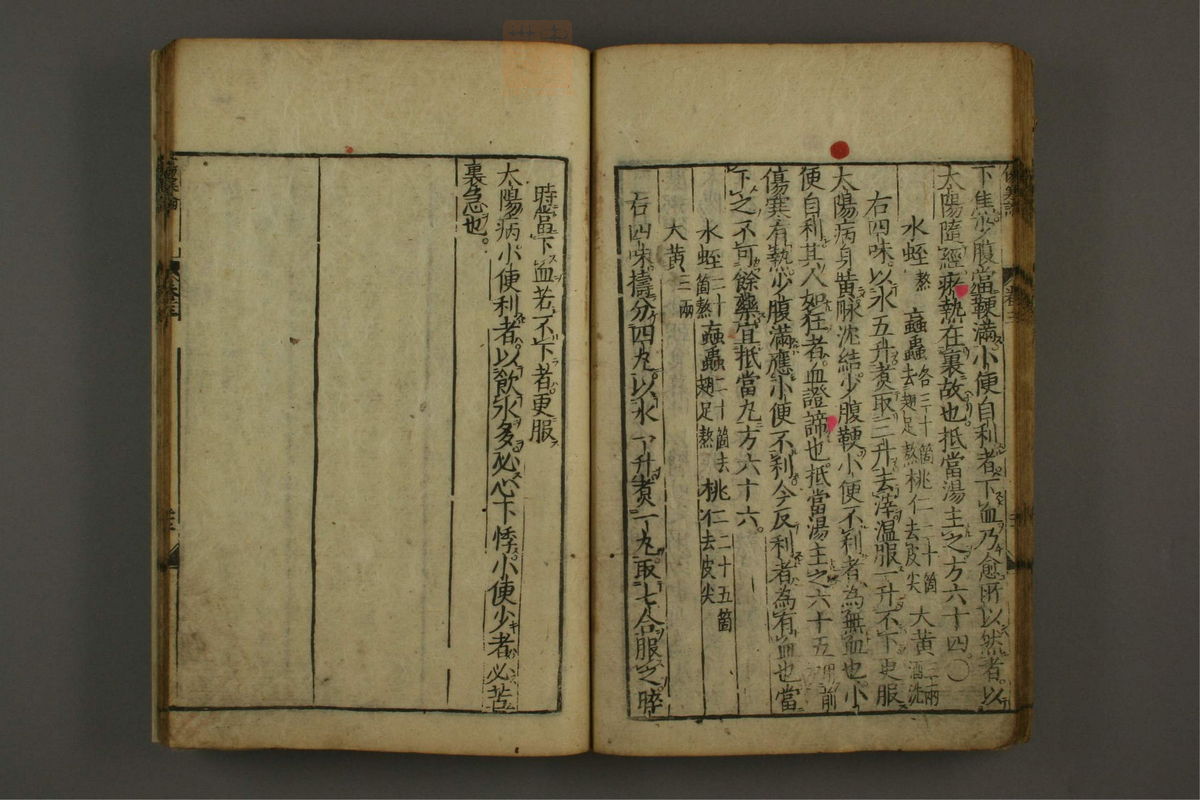 下焦少腹當鞕滿小便自利者下血乃愈所以然者以
太陽隨經瘀熱在裏故也抵當湯主之方六十四○
水蛭熬 䗪蟲各三十箇去翅足熬 桃仁二十箇去皮尖 大黃三兩酒洗
右四味以水五升煮取三升去滓温服一升不下更服
太陽病身黃脉沈結少腹鞕小便不利者為無血也小
便自利其人如狂者血證諦也抵當湯主之六十五用前
傷寒有熱少腹滿應小便不利今反利者為有血也當
下之不可餘藥宜抵當丸方六十六
水蛭二十箇熬 䗪蟲二十箇去翅足熬 桃仁二十五箇去皮尖
大黃三兩
右四味擣分四丸以水一升煮一丸取七合服之晬
時當下血若不下者更服
太陽病小便利者以飲水多必心下悸小便少者必苦
裏急也